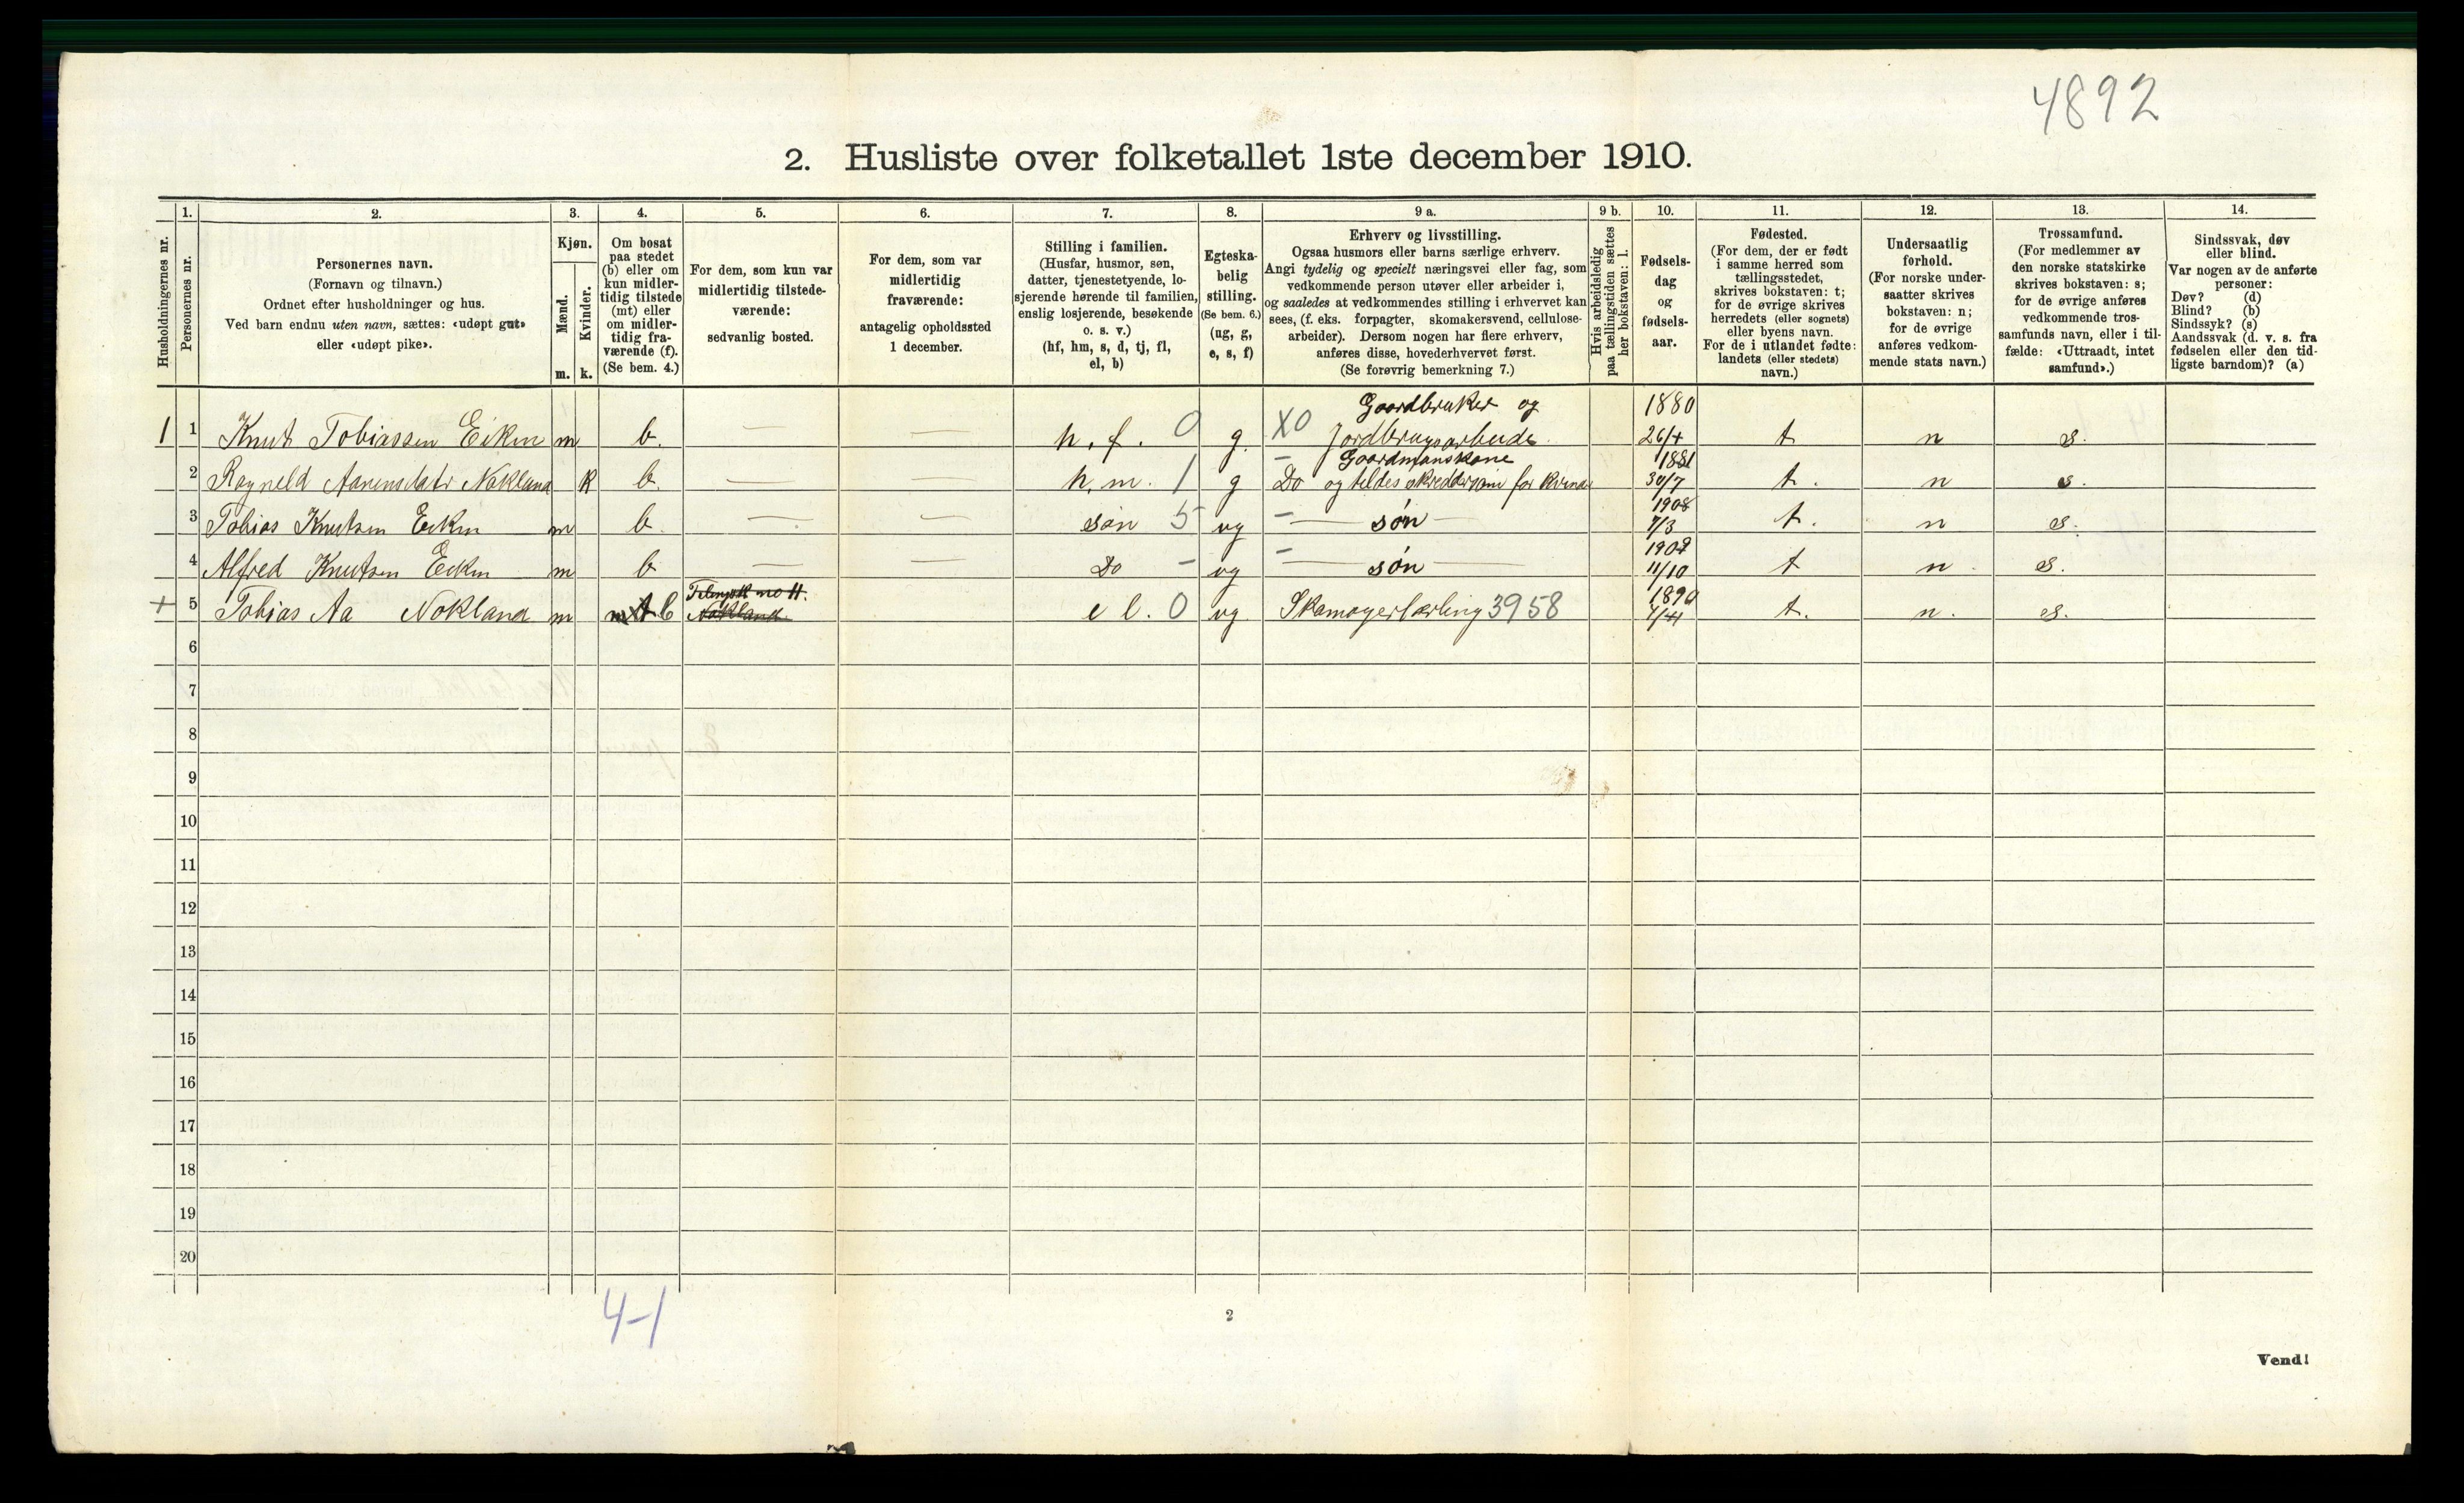 4892
2. Husliste over folketallet 1ste december 1910.
1. 2. 3. 4. 5. 6. 7. 8. 9 a. 9 b. 10. 11. 12. 13. 14.
Husholdningernes nr.
Personernes nr.
Personernes navn.
(Fornavn og tilnavn.)
Ordnet efter husholdninger og hus.
Ved barn endnu uten navn, sættes: «udøpt gut»
eller «udøpt pike».
Kjøn.
Mænd.
Kvinder.
m. k.
Om bosat
paa stedet
(b) eller om
kun midler-
tidig tilstede
(mt) eller
om midler-
tidig fra-
værende (f).
(Se bem. 4.)
For dem, som kun var
midlertidig tilstede-
værende:
sedvanlig bosted.
For dem, som var
midlertidig
fraværende:
antagelig opholdssted
1 december.
Stilling i familien.
(Husfar, husmor, søn,
datter, tjenestetyende, lo-
sjerende hørende til familien,
enslig losjerende, besøkende
o. s. v.)
(hf, hm, s, d, tj, fl,
el, b)
Egteska-
belig
stilling.
(Se bem. 6.)
(ug, g,
e, s, f)
Erhverv og livsstilling.
Ogsaa husmors eller barns særlige erhverv.
Angi tydelig og specielt næringsvei eller fag, som
vedkommende person utøver eller arbeider i,
og saaledes at vedkommendes stilling i erhvervet kan
sees, (f. eks. forpagter, skomakersvend, cellulose-
arbeider). Dersom nogen har flere erhverv,
anføres disse, hovederhvervet først.
(Se forøvrig bemerkning 7.)
Hvis arbeidsledig
paa tællingstiden sættes
her bokstaven: l.
Fødsels-
dag
og
fødsels-
aar.
Fødested.
(For dem, der er født
i samme herred som
tællingsstedet,
skrives bokstaven: t;
for de øvrige skrives
herredets (eller sognets)
eller byens navn.
For de i utlandet fødte:
landets (eller stedets)
navn.)
Undersaatlig
forhold.
(For norske under-
saatter skrives
bokstaven: n;
for de øvrige
anføres vedkom-
mende stats navn.)
Trossamfund.
(For medlemmer av
den norske statskirke
skrives bokstaven: s;
for de øvrige anføres
vedkommende tros-
samfunds navn, eller i til-
fælde: «Uttraadt, intet
samfund».)
Sindssvak, døv
eller blind.
Var nogen av de anførte
personer:
Døv? (d)
Blind? (b)
Sindssyk? (s)
Aandssvak (d. v. s. fra
fødselen eller den tid-
ligste barndom)? (a)
Gaardbruker og 1880
1 1 Knut Tobiassen Eiken m b. — — h. f. 0 g. X0 Jordbrugsarbeide. 26/4 t n s.
Gaardmanskone 1881
2 Ragneld Aanensdatr Nokland k b. — — h. m. 1 g Do og tildes skredderske for kvinder 30/7 t. n s.
1908
3 Tobias Knutsen Eiken m b. — — søn 5 ug — søn — 7/3 t. n s.
1909
4 Alfred Knutsen Eiken m b — — Do - ug — søn — 11/10 t n. s.
1890
+ 5 Tobias Aa Nokland m mt b Nokland e l. 0 ug. Skomagerlærling 3958 t. n. s.
6
7
8
9
10
11
12
13
14
15
16
17
18
19
20
4-1
2
Vend!